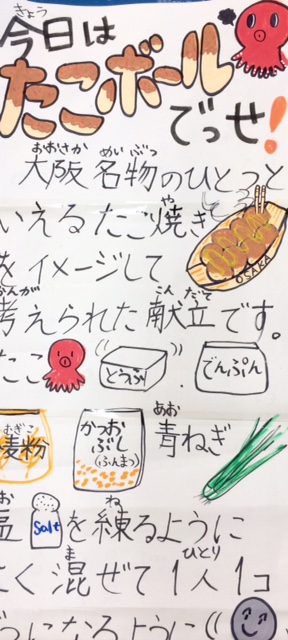 きょう
今日は
たこボール
でっせ！
おおさか めいぶつ
大阪名物のひとつと
いえるたこ焼き
や
OSAKA
をイメージして
かんが こんだて
考えられた献立です。
たこ とうふ でんぷん
むぎこ
麦粉
かつおぶし(ふんまつ)
あお
青ねぎ
お
塩 Salt を練るように
ね
よく混ぜて1人1コ
ま ひとり
になるように